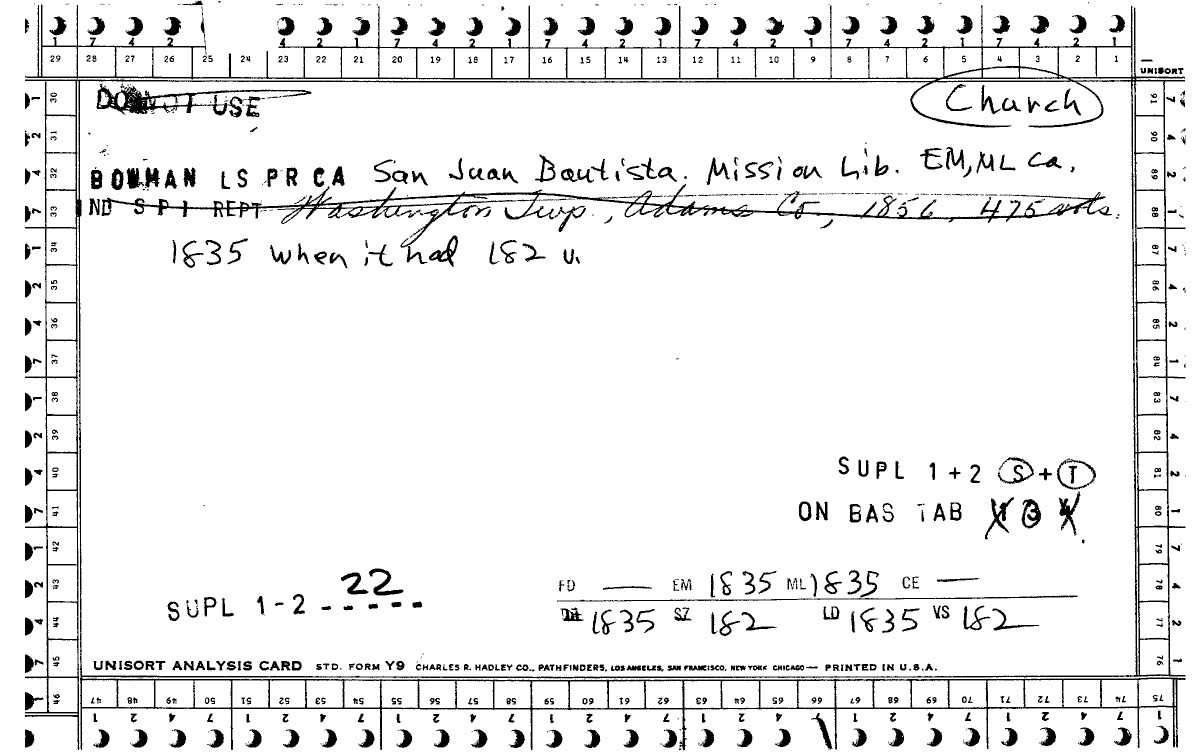 7 4 2 4 2 1 7 4 2 1 7 4 2 1 7 4 2 1 7 4 2 1 7 4 2 1
29 28 27 26 25 24 23 22 21 20 19 18 17 16 15 14 13 12 11 10 9 8 7 6 5 4 3 2 1
UNISORT
DO NOT USE
Church
BOWMAN LS PR CA San Juan Bautista. Mission Lib. EM, ML Ca.
IND S P I REPT Washington Twp., Adams Co, 1856, 475 vols.
1835 when it had 182 v.
SUPL 1+2 S+T
ON BAS TAB X 3 X
SUPL 1-2 ----- 22
FD — EM 1835 ML 1835 CE —
1835 SZ 182 LD 1835 VS 182
UNISORT ANALYSIS CARD STD. FORM Y9 CHARLES R. HADLEY CO., PATHFINDERS, LOS ANGELES, SAN FRANCISCO, NEW YORK CHICAGO — PRINTED IN U.S.A.
47 48 49 50 51 52 53 54 55 56 57 58 59 60 61 62 63 64 65 66 67 68 69 70 71 72 73 74 75
1 2 4 7 1 2 4 7 1 2 4 7 1 2 4 7 1 2 4 7 1 2 4 7 1 2 4 7 1
30 31 32 33 34 35 36 37 38 39 40 41 42 43 44 45 46
91 90 89 88 87 86 85 84 83 82 81 80 79 78 77 76